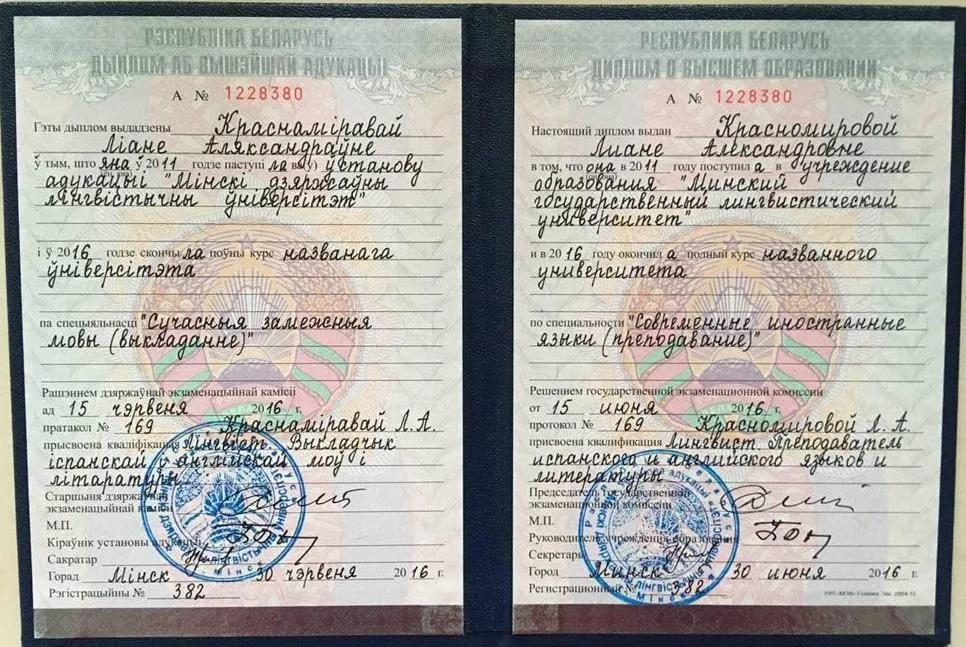 РЭСПУБЛІКА БЕЛАРУСЬ
ДЫПЛОМ АБ ВЫШЭЙШАЙ АДУКАЦЫІ
А № 1228380
Гэты дыплом выдадзены Красналміравай
Ліане Аляксандраўне
ў тым, што яна ў 2011 годзе паступіла ва ўстанову
адукацыі "Мінскі дзяржаўны
лінгвістычны ўніверсітэт"
і ў 2016 годзе скончыла поўны курс названага
ўніверсітэта
па спецыяльнасці "Сучасныя замежныя
мовы (выкладанне)"
Рашэннем дзяржаўнай экзаменацыйнай камісіі
ад 15 чэрвеня 2016 г.
пратакол № 169 Красналміравай Л. А.
прысвоена кваліфікацыя Лінгвіст. Выкладчык
іспанскай і англійскай моў і
літаратуры
Старшыня дзяржаўнай
экзаменацыйнай камісіі
М.П.
Кіраўнік установы адукацыі
Сакратар
Горад Мінск 30 чэрвеня 2016 г.
Рэгістрацыйны № 382
РЕСПУБЛИКА БЕЛАРУСЬ
ДИПЛОМ О ВЫСШЕМ ОБРАЗОВАНИИ
А № 1228380
Настоящий диплом выдан Красномировой
Лиане Александровне
в том, что она в 2011 году поступила в учреждение
образования "Минский
государственный лингвистический
университет"
и в 2016 году окончила полный курс названного
университета
по специальности "Современные иностранные
языки (преподавание)"
Решением государственной экзаменационной комиссии
от 15 июня 2016 г.
протокол № 169 Красномировой Л. А.
присвоена квалификация Лингвист. Преподаватель
испанского и английского языков и
литературы
Председатель государственной
экзаменационной комиссии
М.П.
Руководитель учреждения образования
Секретарь
Город Минск 30 июня 2016 г.
Регистрационный № 382